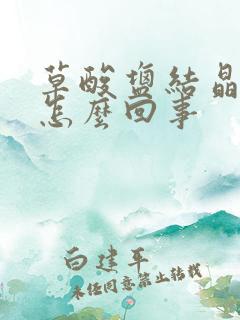 草酸盐结晶
怎麽回事
白建平
未经同意禁止转载